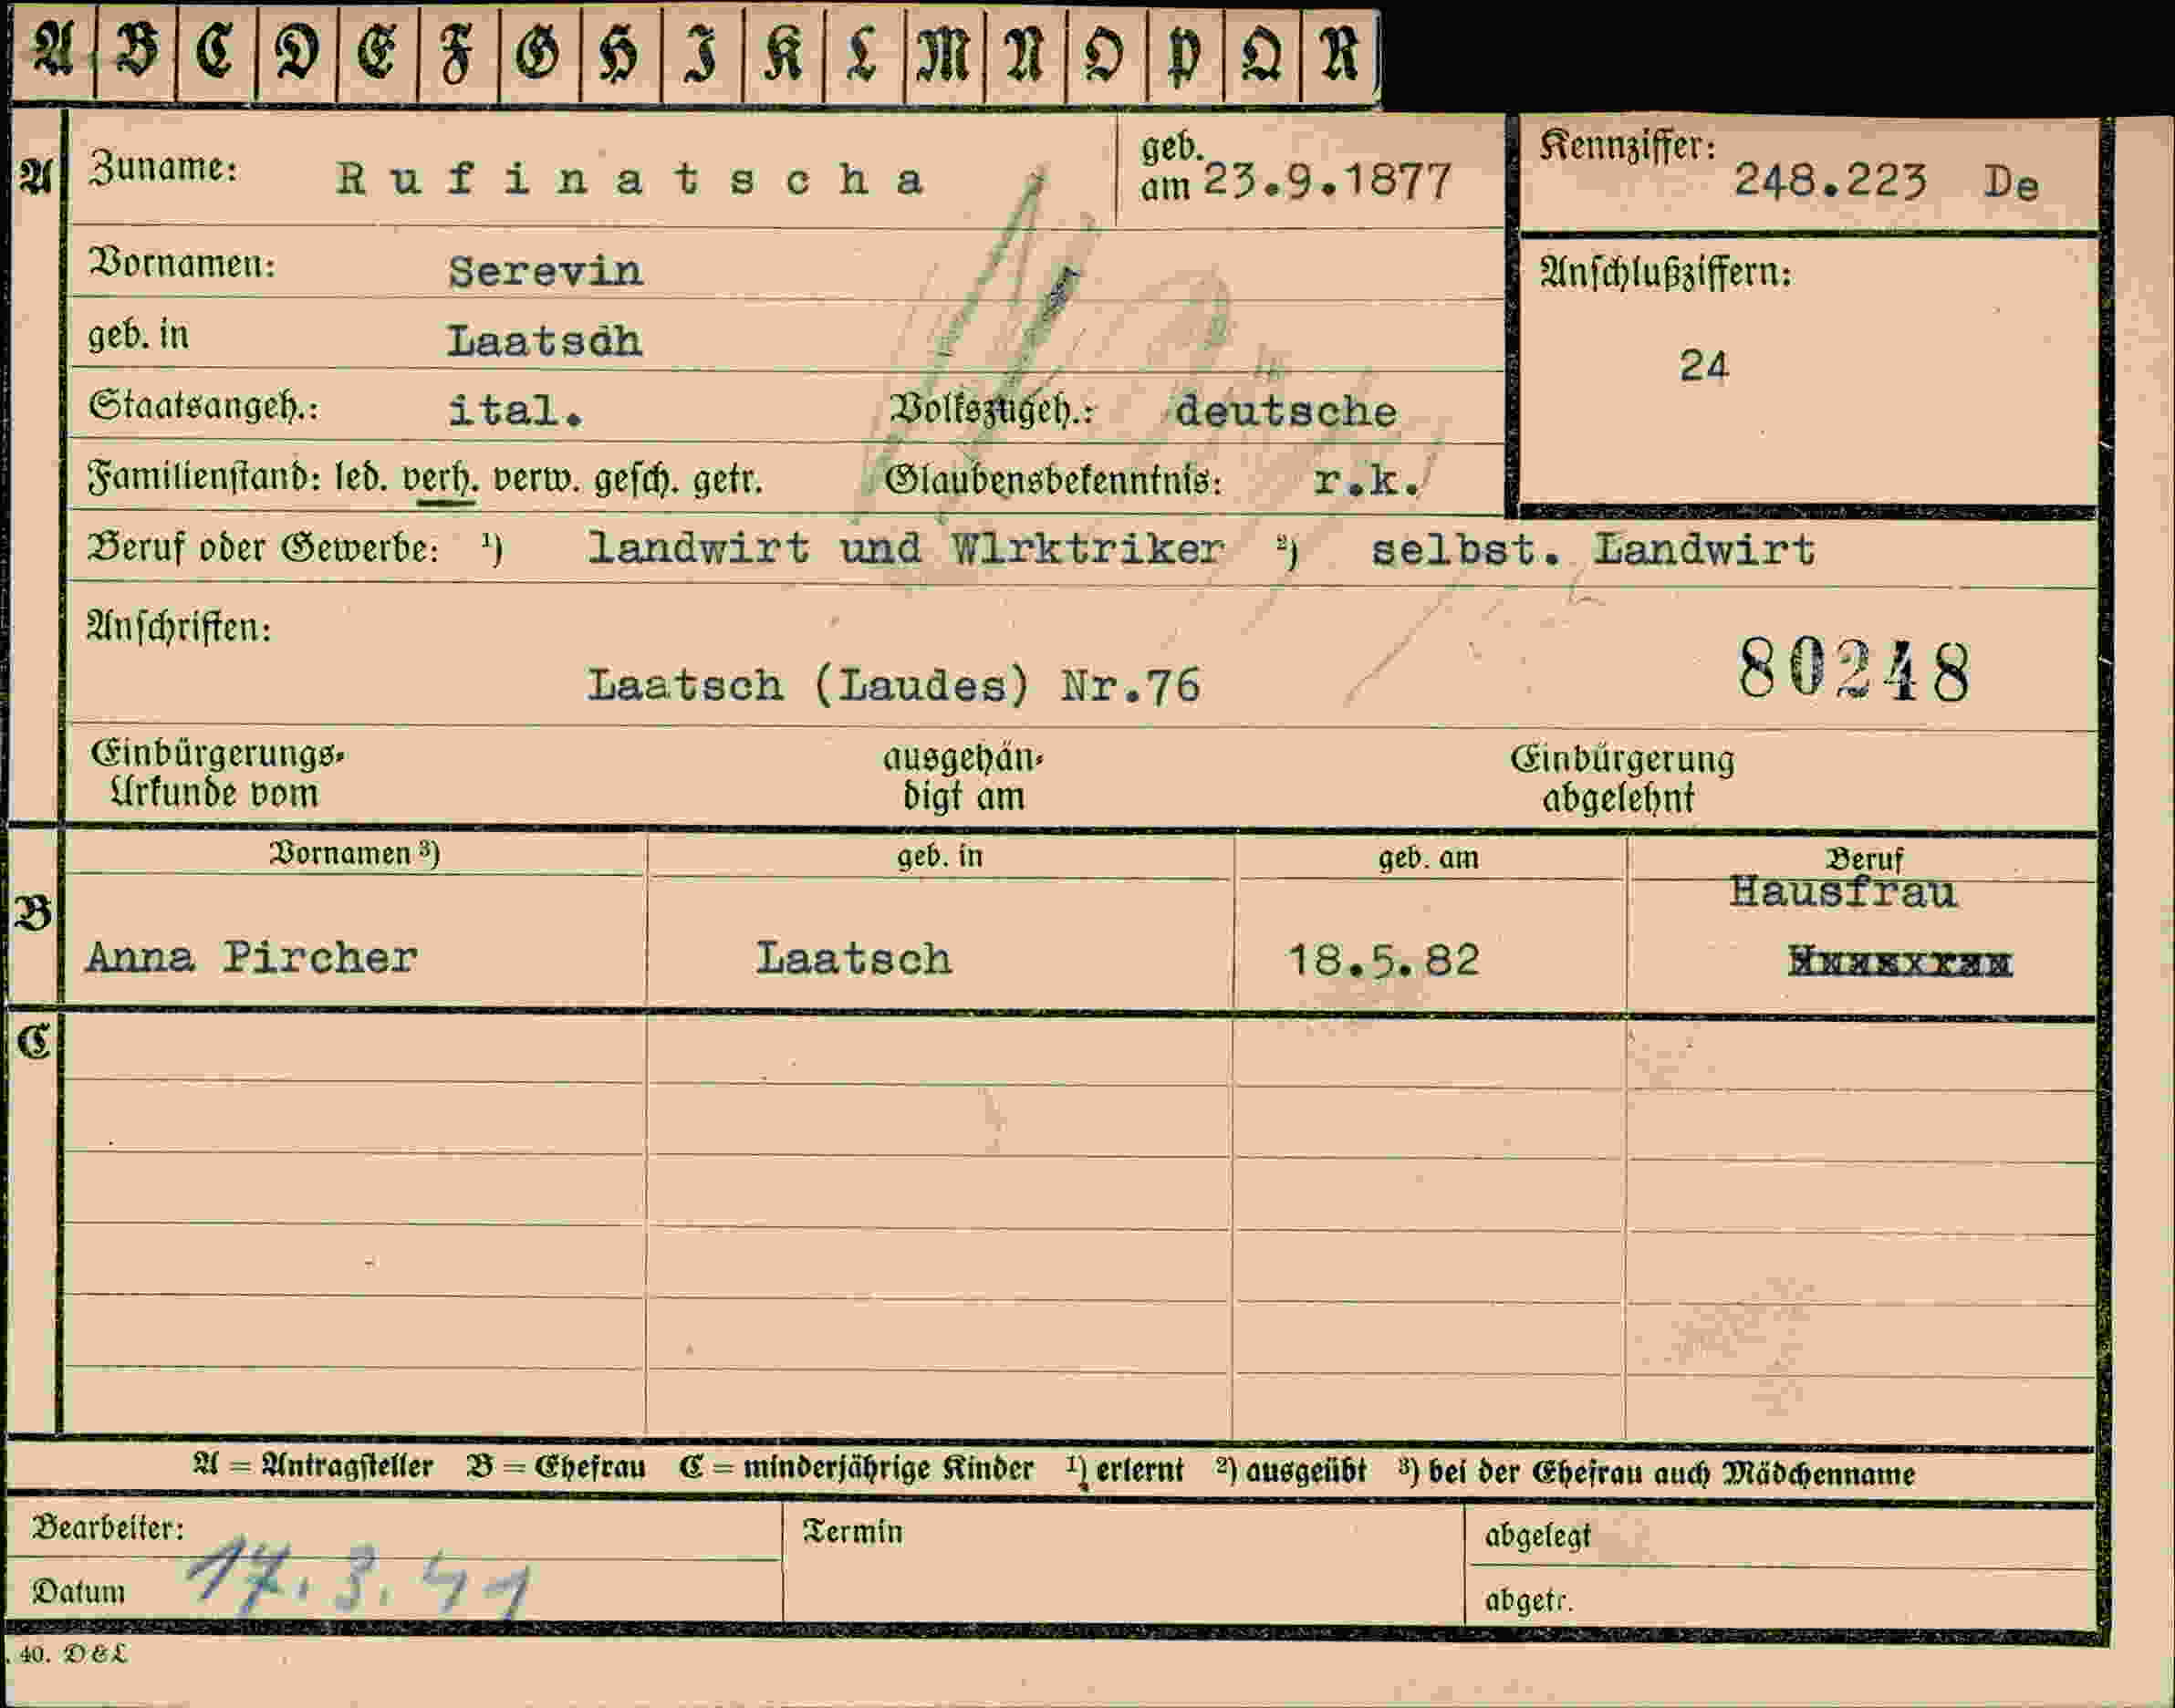 A B C D E F G H I K L M N O P Q R
A Zuname: Rufinatscha geb. am 23.9.1877 Kennziffer: 248.223 De
Vornamen: Serevin
Anschlußziffern:
geb. in Laatsdh
24
Staatsangeh.: ital. Volkszugeh.: deutsche
Familienstand: led. verh. verw. gesch. getr. Glaubensbekenntnis: r.k.
Beruf oder Gewerbe: ¹) landwirt und Wlrktriker ²) selbst. Landwirt
Anschriften:
Laatsch (Laudes) Nr.76 80248
Einbürgerungs- ausgehän- Einbürgerung
Urkunde vom digt am abgelehnt
Vornamen ³) geb. in geb. am Beruf
B Hausfrau
Anna Pircher Laatsch 18.5.82
C
A = Antragsteller B = Ehefrau C = minderjährige Kinder ¹) erlernt ²) ausgeübt ³) bei der Ehefrau auch Mädchenname
Bearbeiter: Termin abgelegt
Datum 17.3.41 abgetr.
40. D & L